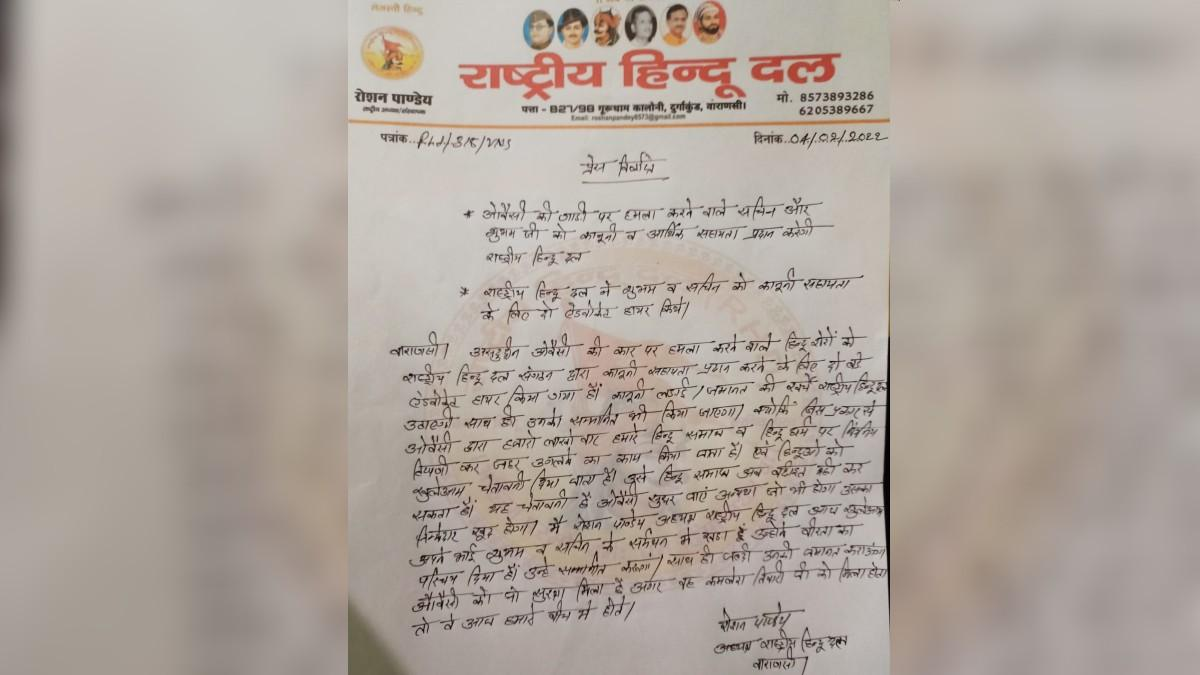 तेजस्वी हिन्दू
राष्ट्रीय हिन्दू दल
रोशन पाण्डेय
राष्ट्रीय अध्यक्ष/संस्थापक
पत्ता - B27/98 गुरूधाम कालोनी, दुर्गाकुंड, वाराणसी।
Email: roshanpandey8573@gmail.com
मो. 8573893286
6205389667
पत्रांक.. /VNS
दिनांक..04/02/2022
प्रेस विज्ञप्ति
* ओवैसी की गाडी पर हमला करने वाले सचिन और
शुभम जी को कानूनी व आर्थिक सहायता प्रदान करेगी
राष्ट्रीय हिन्दू दल
* राष्ट्रीय हिन्दू दल ने शुभम व सचिन को कानूनी सहायता
के लिए दो ऐडवोकेट हायर किये।
वाराणसी। असदुद्दीन ओवैसी की कार पर हमला करने वाले हिन्दू शेरों को
राष्ट्रीय हिन्दू दल संगठन द्वारा कानूनी सहायता प्रदान करने के लिए दो बड़े
ऐडवोकेट हायर किया गया हैं। कानूनी लड़ाई / जमानत की खर्चे राष्ट्रीय हिन्दू दल
उठाएगी साथ ही उनको सम्मानित भी किया जाएगा। क्योंकि जिस प्रकार से
ओवैसी द्वारा हजारो लाखो बार हमारे हिन्दू समाज व हिन्दू धर्म पर
टिप्पणी कर जहर उगलने का काम किया जाता हैं। एवं हिन्दूओ को
खुलेआम चेतावनी दिया जाता हैं। उसे हिन्दू समाज अब बर्दास्त नही कर
सकता हैं। यह चेतावनी हैं ओवैसी सुधर जाएं अन्यथा जो भी होगा उसका
जिम्मेदार खुद होगा। मै रोशन पाण्डेय अध्यक्ष राष्ट्रीय हिन्दू दल आज खुलेआम
अपने भाई शुभम व सचिन के समर्थन मे खडा हूं उन्होने वीरता का
परिचय दिया हैं। उन्हे सम्मानित करूंगा। साथ ही जल्दी उनकी जमानत कराऊंगा
ओवैसी को जो सुरक्षा मिला हैं अगर वह कमलेश तिवारी जी को मिला होता
तो वे आज हमारे बीच मे होते।
रोशन पाण्डेय
अध्यक्ष राष्ट्रीय हिन्दू दल
वाराणसी।